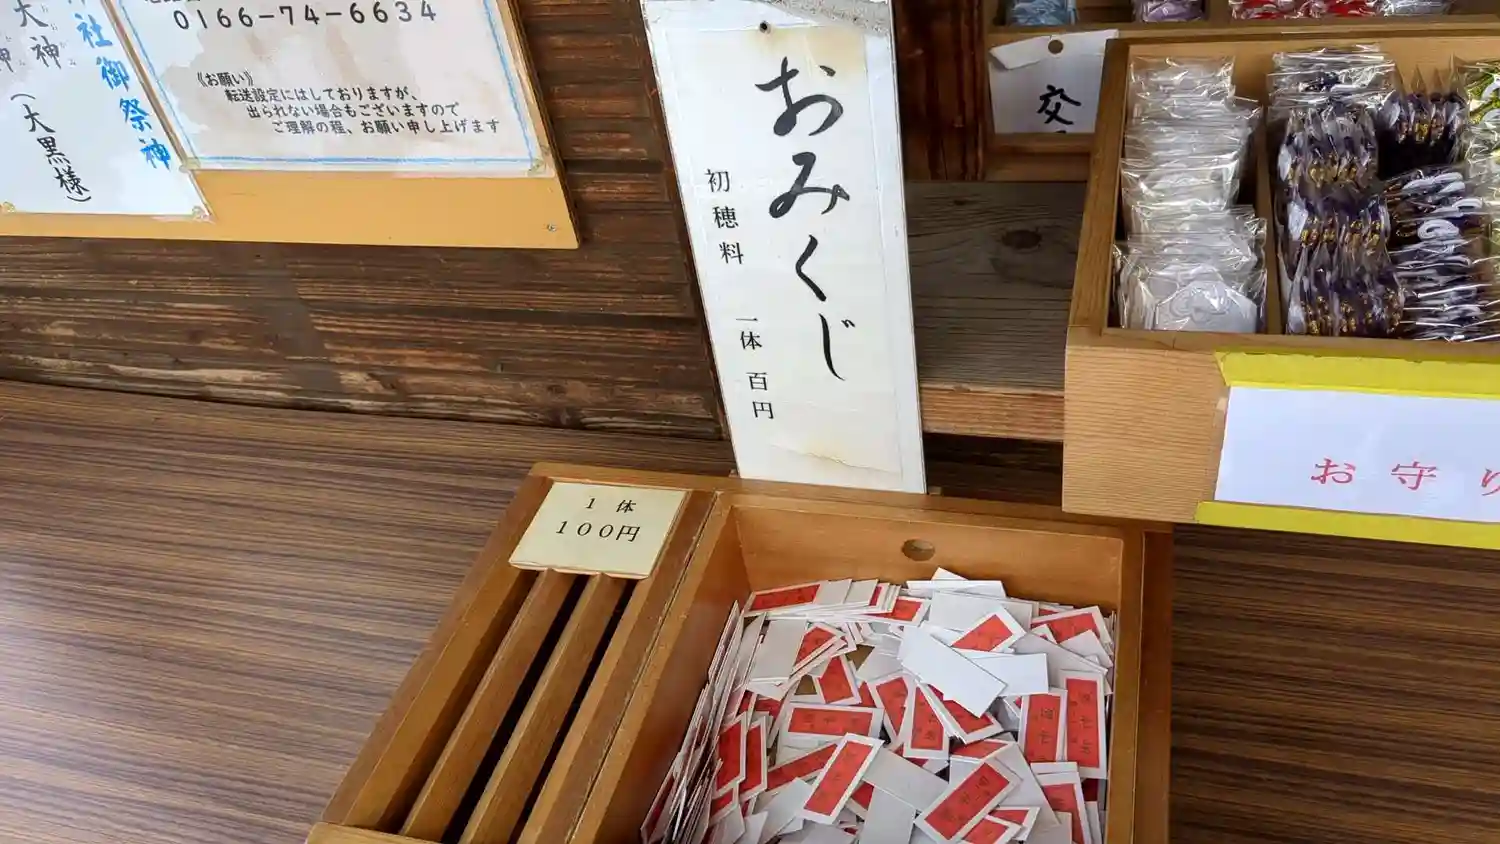 社御祭神
大神
神
(大黒様)
0166-74-6634
《お願い》
転送設定にはしておりますが、
出られない場合もございますので
ご理解の程、お願い申し上げます
おみくじ
初穂料 一体 百円
1 体
100円
交
お守り